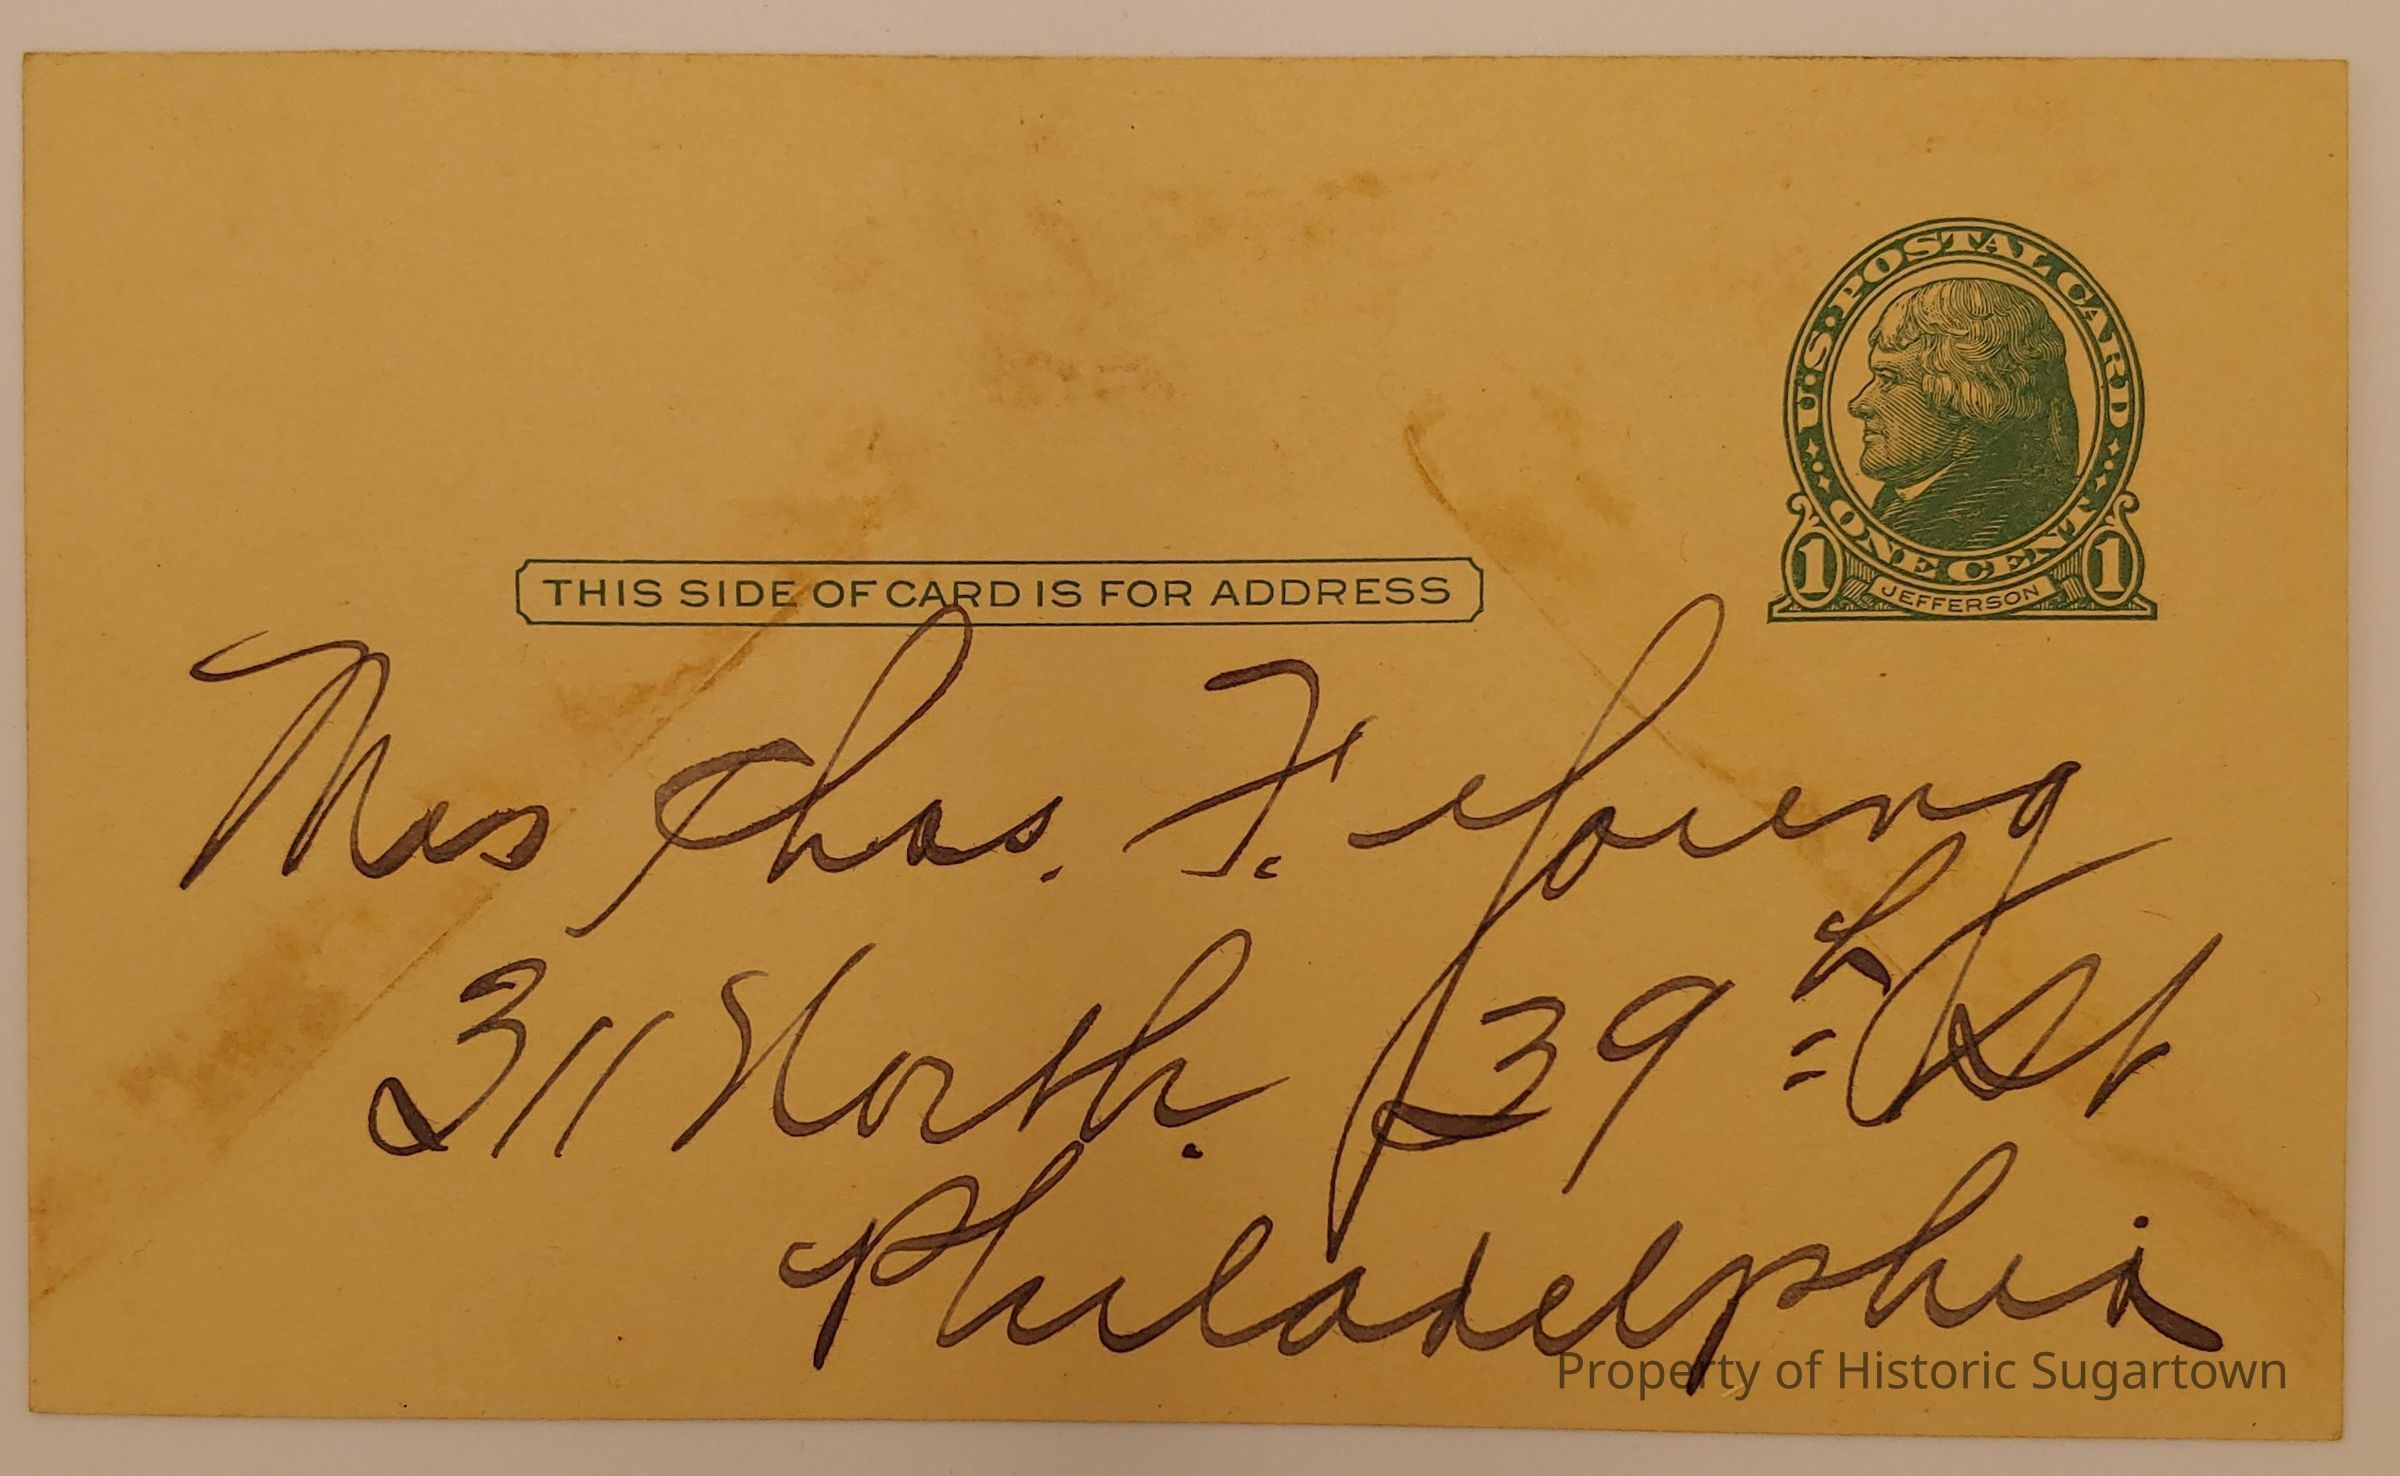 U.S. POSTAL CARD
ONE CENT
1 JEFFERSON 1
THIS SIDE OF CARD IS FOR ADDRESS
Mrs Chas. F. Young
311 North. 39th St
Philadelphia
Property of Historic Sugartown